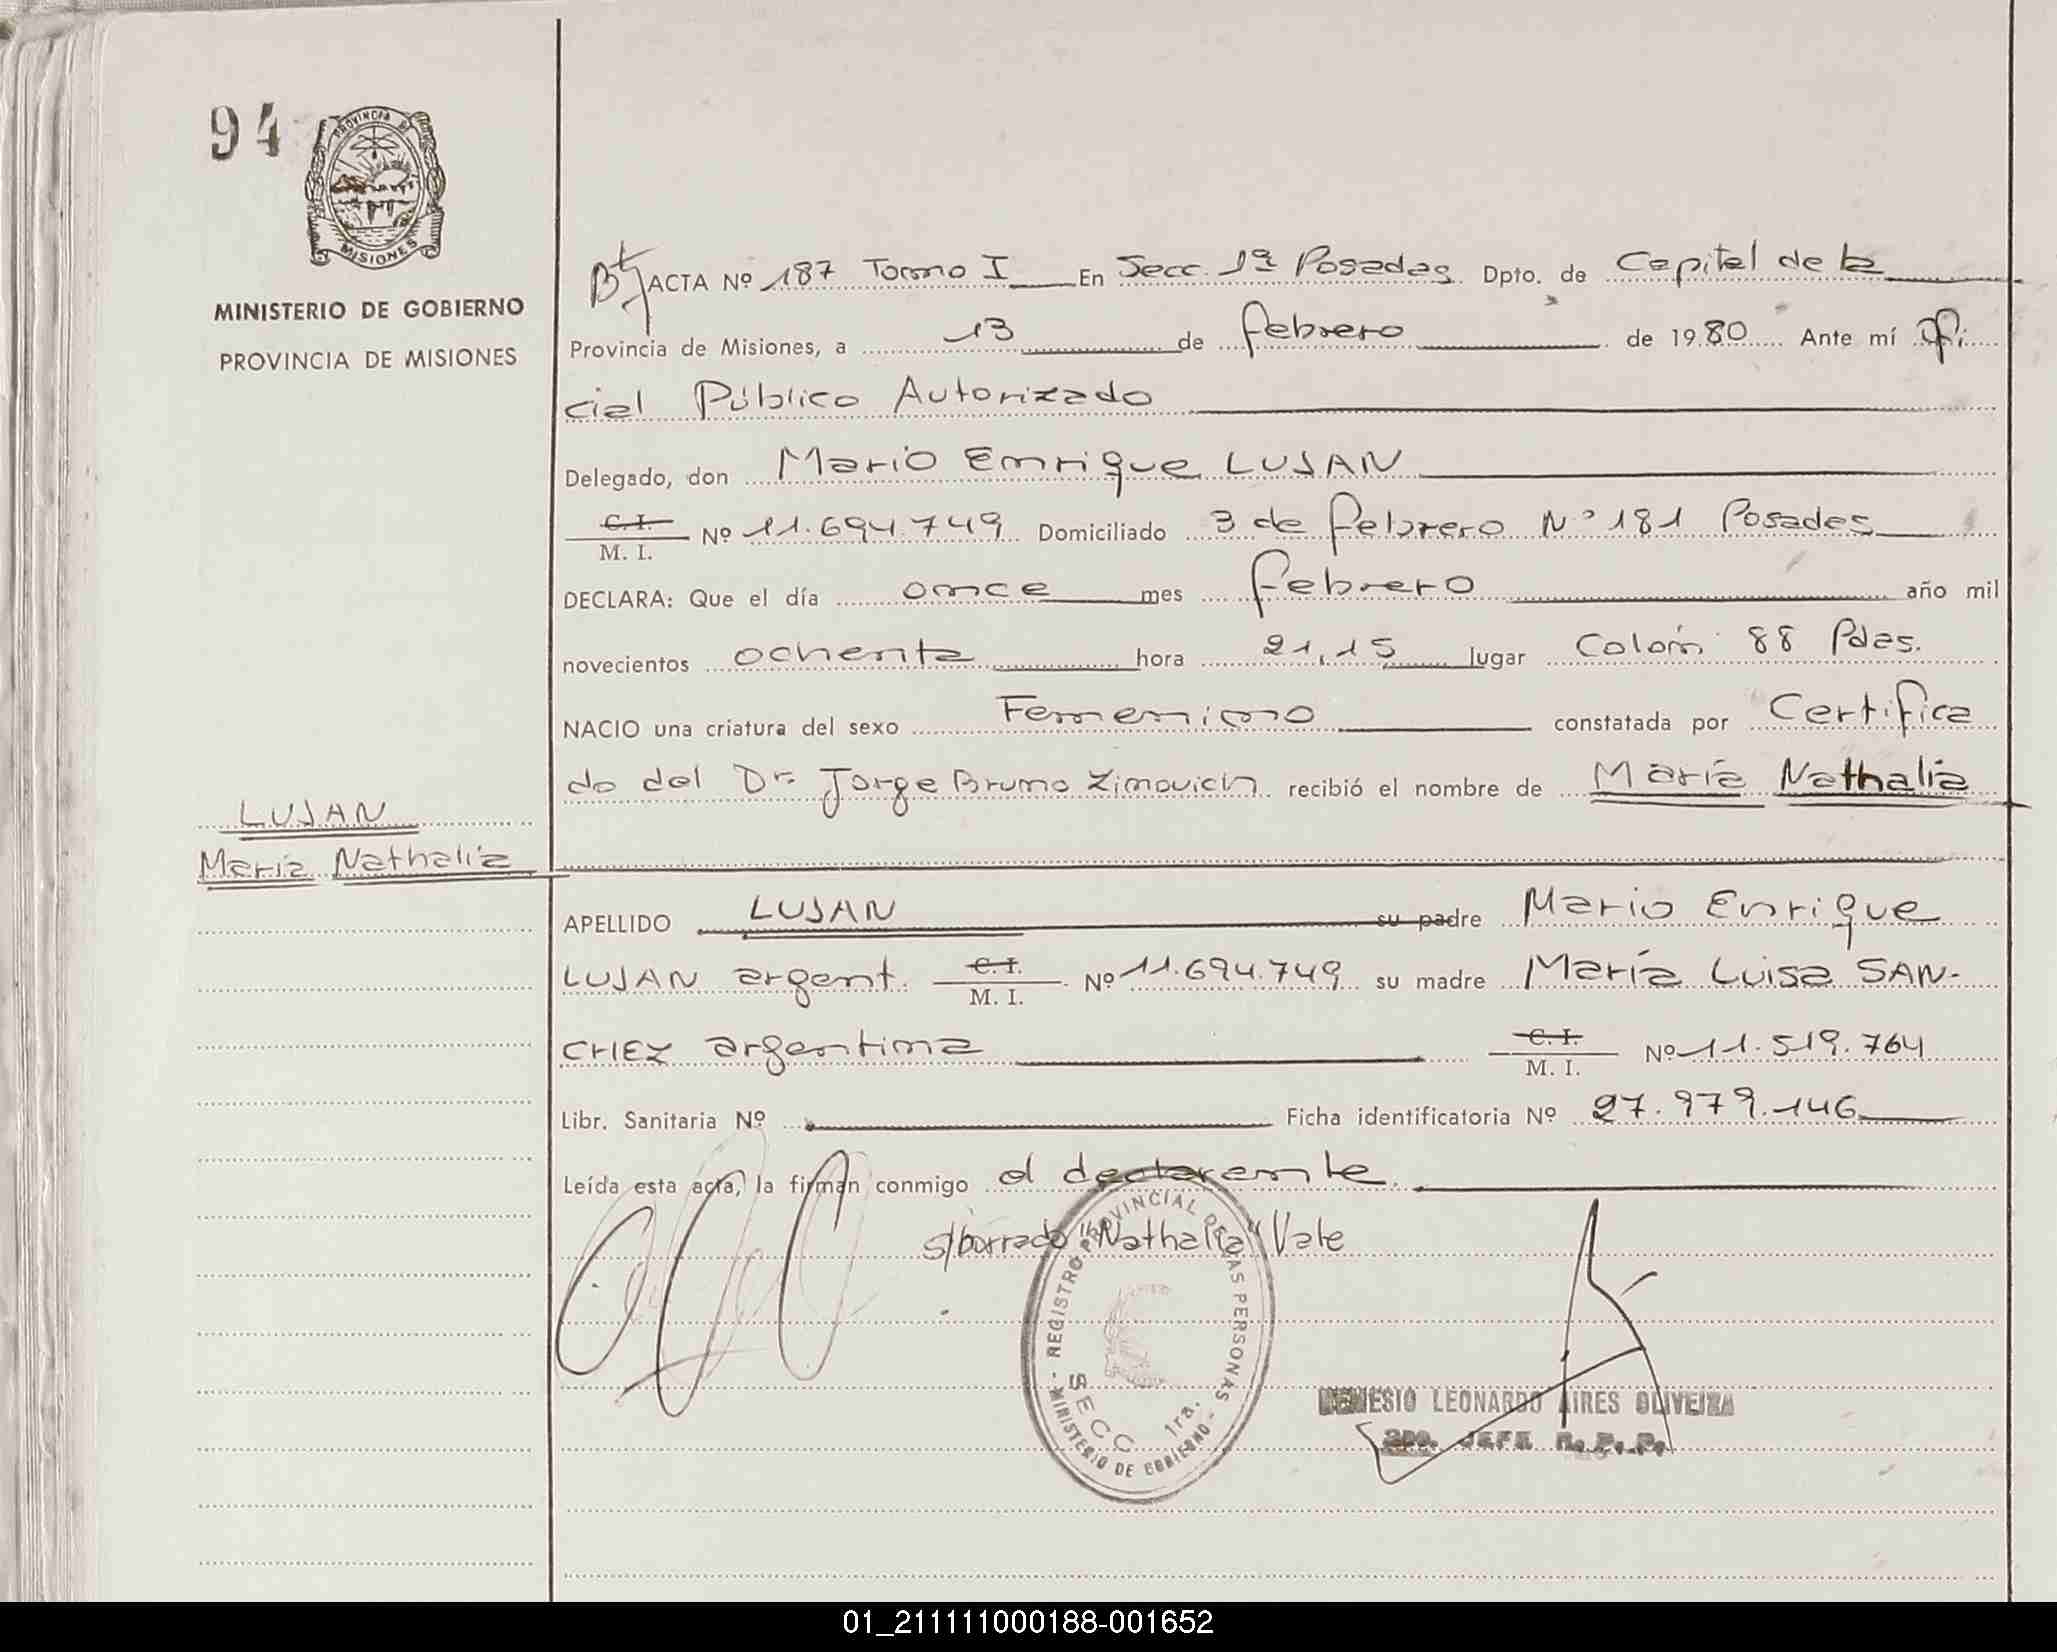 94
PROVINCIA DE
MISIONES
MINISTERIO DE GOBIERNO
PROVINCIA DE MISIONES
ACTA Nº 187 Tomo I En Secc. 1ª Posadas Dpto. de Capital de la
Provincia de Misiones, a 13 de febrero de 1980 Ante mí Ofi
cial Público Autorizado
Delegado, don Mario Enrique LUJAN
C.I.
M. I. Nº 11.694.749 Domiciliado 3 de febrero Nº 181 Posadas
DECLARA: Que el día once mes febrero año mil
novecientos ochenta hora 21,15 lugar Colón 88 Pdas.
NACIO una criatura del sexo Femenino constatada por Certifica
do del Dr. Jorge Bruno Zimovich recibió el nombre de María Nathalia
LUJAN
María Nathalia
APELLIDO LUJAN su padre Mario Enrique
LUJAN argent. C.I.
M. I. Nº 11.694.749 su madre María Luisa SAN-
CHEZ argentina C.I.
M. I. Nº 11.519.764
Libr. Sanitaria Nº Ficha identificatoria Nº 27.979.146
Leída esta acta, la firman conmigo el declarante.
s/borrado "Nathalia" Vale
REGISTRO PROVINCIAL DE LAS PERSONAS
SECC 1ra.
MINISTERIO DE GOBIERNO
NEMESIO LEONARDO AIRES OLIVEIRA
2DO. JEFE R. P. P.
01_211111000188-001652